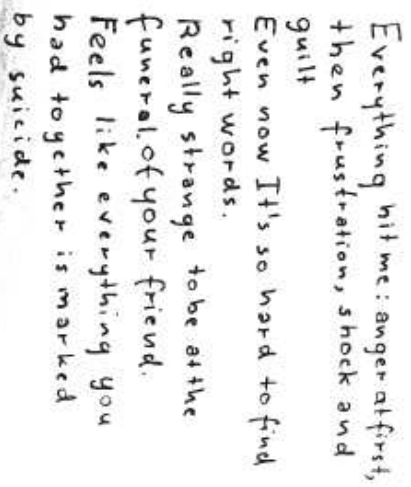 Everything hit me: anger at first,
then frustration, shock and
guilt
Even now It's so hard to find
right words.
Really strange to be at the
funeral of your friend.
Feels like everything you
had together is marked
by suicide.